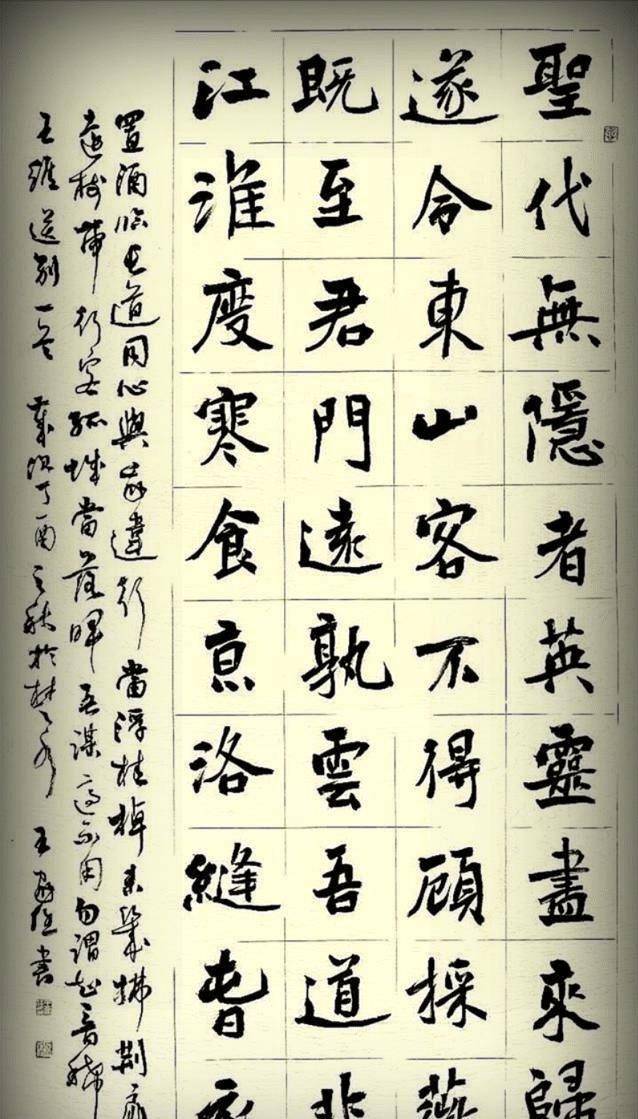 聖代無隱者英靈盡來歸
遂令東山客不得顧採薇
既至君門遠孰雲吾道非
江淮度寒食京洛縫春衣
置酒臨長道同心與我違行當浮桂棹未幾拂荊扉
遠樹帶行客孤城當落暉吾謀適不用勿謂知音稀
王維送別一首 歲次丁酉之秋於楚 王書